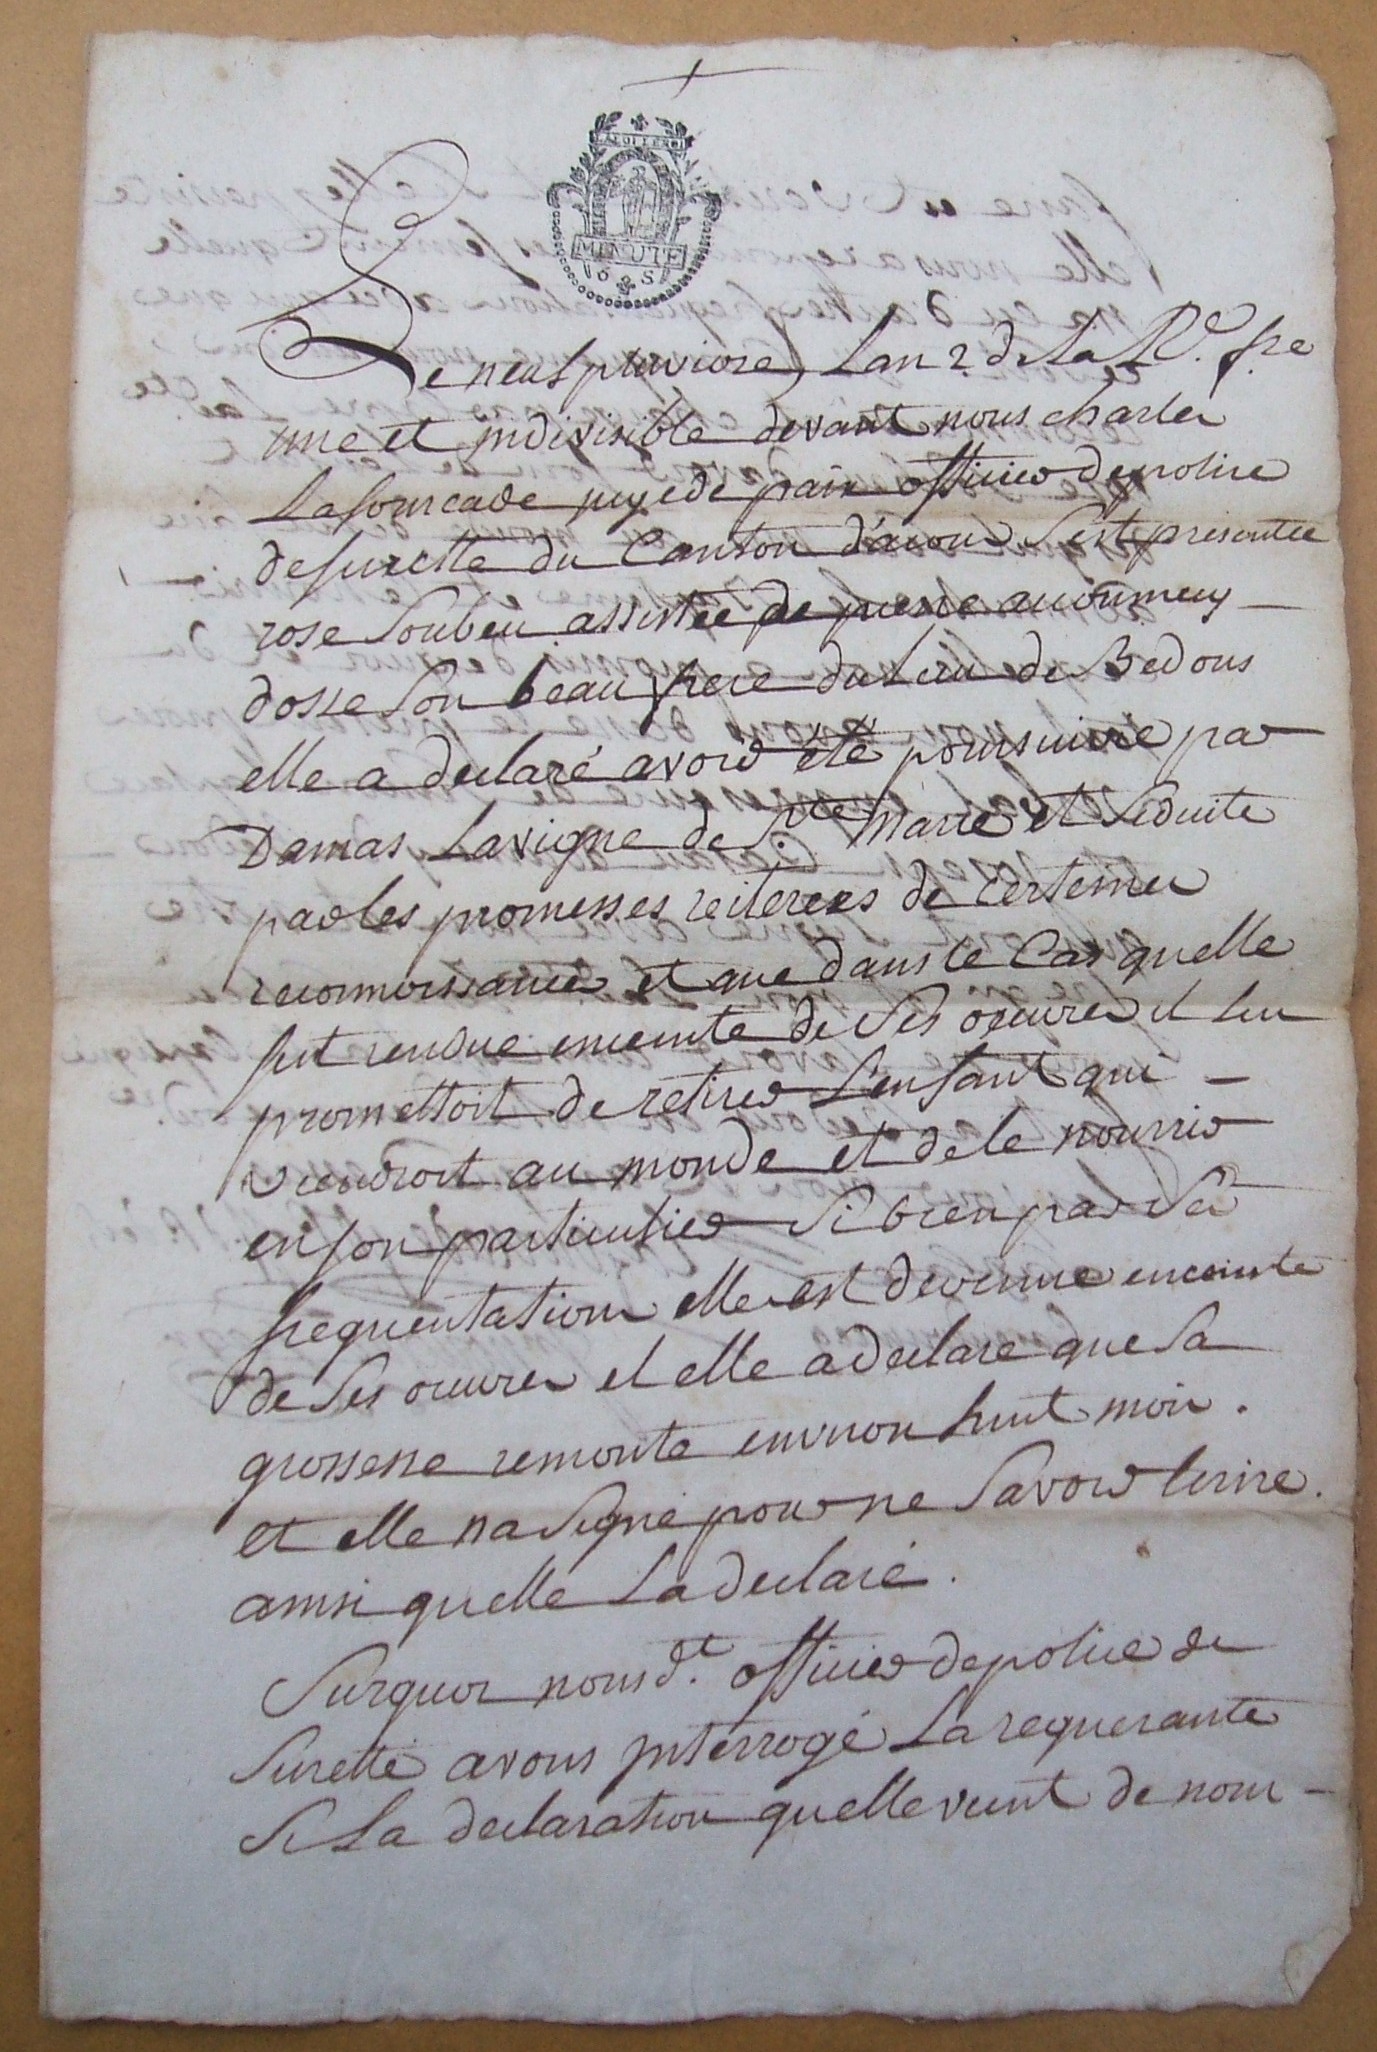 LA LOI LE ROI
MINUTE
6 S
Le neuf pluviose Lan 2 de la R.e fse
une et jndivisible devant nous charles
Lafourcade juge de paix officier de police
de surette du Canton d'acous s'est presentée
rose Loubeu assistée de pierre
dosse son beau frere du lieu de Bedous
elle a declaré avoir été poursuivie par
Damas Lavigne de S.te marie et seduite
par les promesses reiterees de certaines
reconnoissances et que dans le Cas quelle
fut rendue enceinte de ses oeuvres il lui
promettoit de retirer L'enfant qui -
viendroit au monde et de le nourrir
en son particulier si bien par sa
frequentation elle est devenue enceinte
de ses oeuvres et elle a declaré que sa
grossesse remonte environ huit mois.
et elle na signé pour ne savoir ecrire.
ainsi quelle La declaré.
Surquoi nous d.t officier de police de
Surette avons jnterrogé La requerante
si La declaration quelle vient de nous -